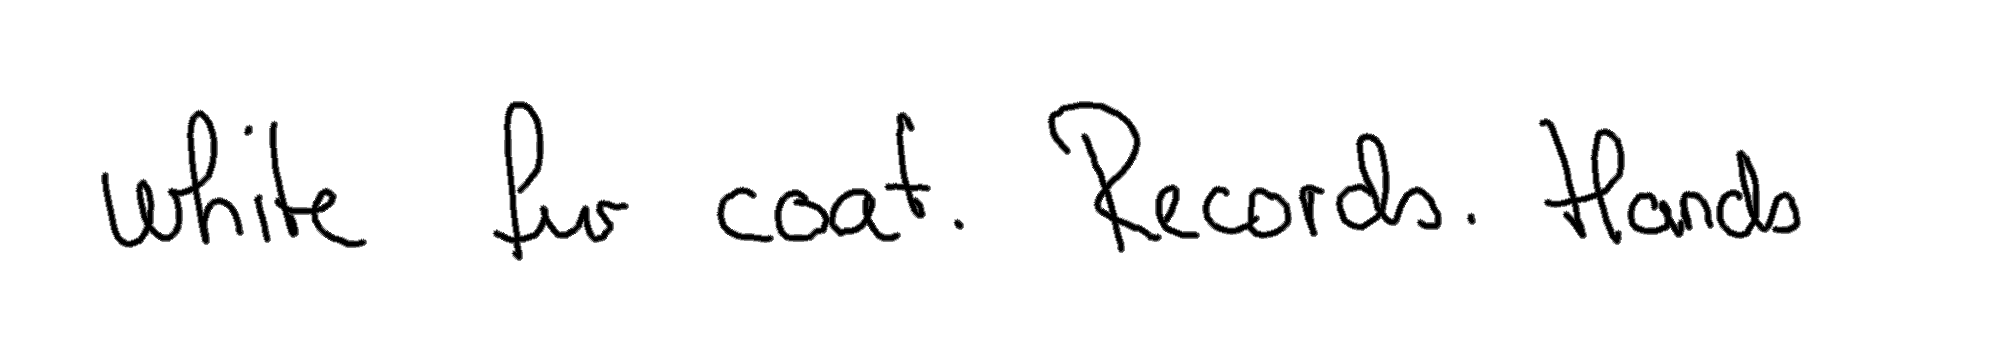 white fur coat. Records. Hands